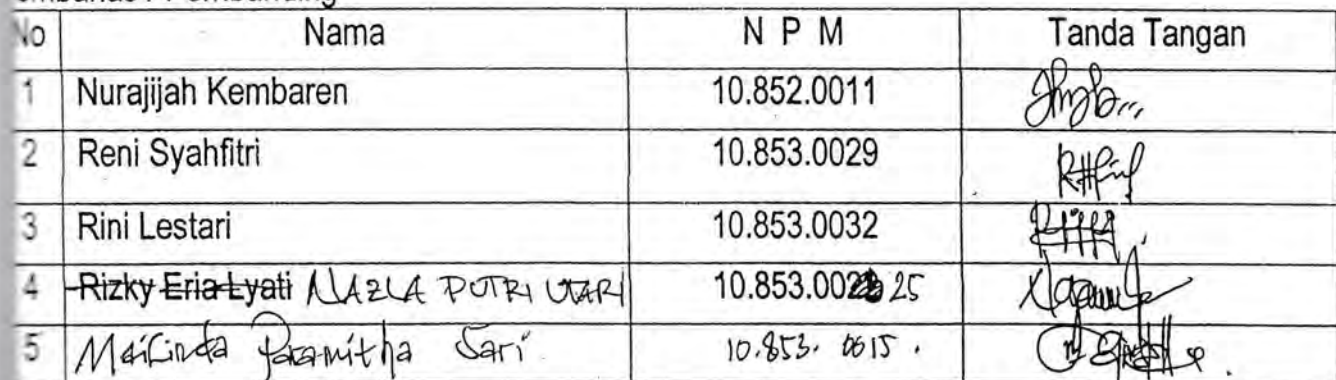 No Nama N P M Tanda Tangan
1 Nurajijah Kembaren 10.852.0011
2 Reni Syahfitri 10.853.0029
3 Rini Lestari 10.853.0032
4 Rizky Eria Lyati NAZLA PUTRI UTARI 10.853.0025
5 Meilinda Paramitha Sari 10.853.0015.